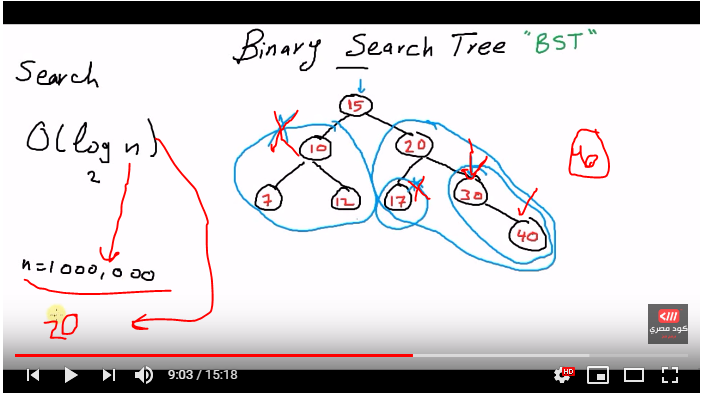 Binary Search Tree "BST"
Search
O(log₂ n)
n=1000,000
20
15
10
20
7
12
17
30
40
40
كود مصري
9:03 / 15:18
HD